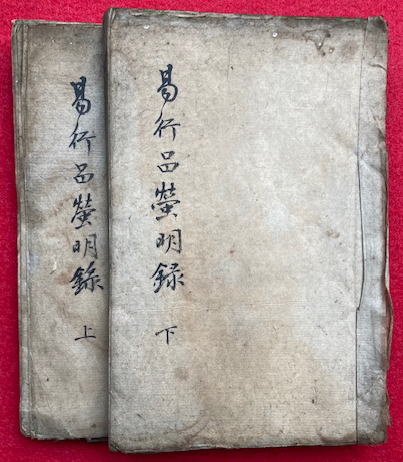 易行品螢明録 下
易行品螢明録 上